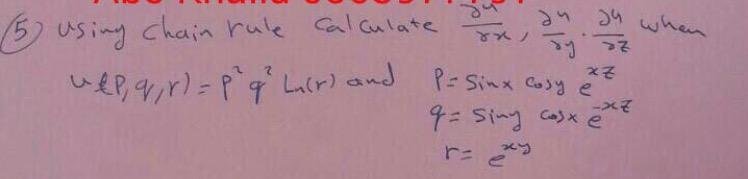 (5) using chain rule Calculate ∂u/∂x, ∂u/∂y. ∂u/∂z when
u(P,q,r) = p² q² Ln(r) and P = Sinx Cosy e^{xz}
q = Siny Cosx e^{-xz}
r = e^{xy}